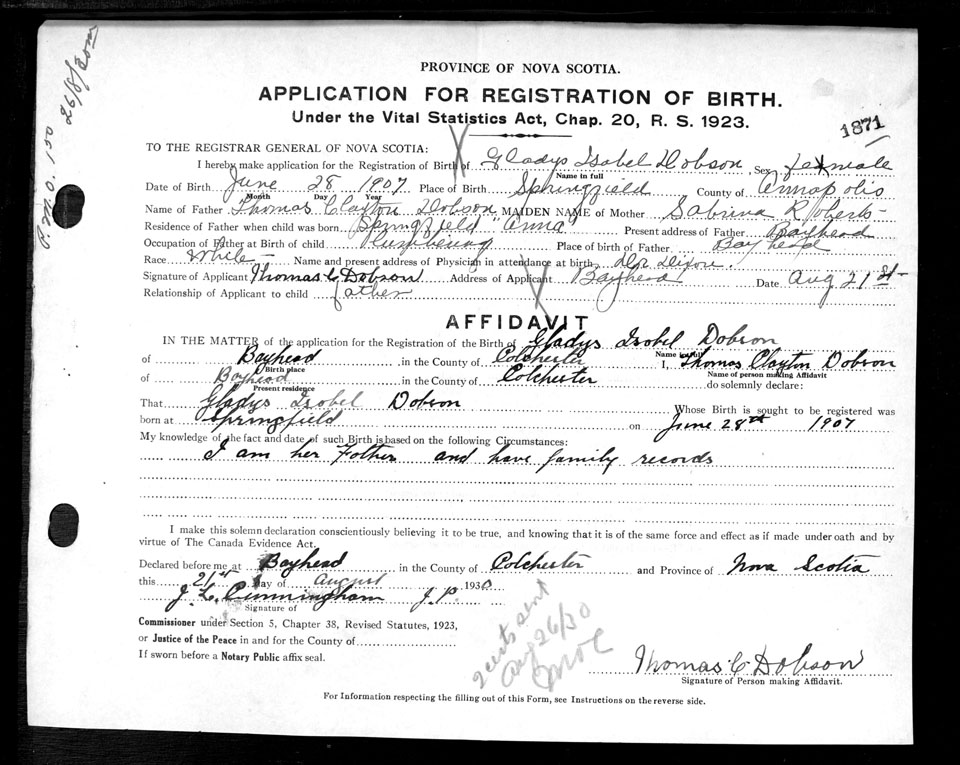 PROVINCE OF NOVA SCOTIA.
APPLICATION FOR REGISTRATION OF BIRTH.
Under the Vital Statistics Act, Chap. 20, R. S. 1923.
1871
P.M.O. 150 26/8/30
TO THE REGISTRAR GENERAL OF NOVA SCOTIA:
I hereby make application for the Registration of Birth of Gladys Isabel Dobson Sex female
Name in full
Date of Birth June 28 1907 Place of Birth Springfield County of Annapolis
Month Day Year
Name of Father Thomas Clayton Dobson MAIDEN NAME of Mother Sabrina Roberts
Residence of Father when child was born Springfield "Anna" Present address of Father Bayhead
Occupation of Father at Birth of child Place of birth of Father Bayhead
Race White Name and present address of Physician in attendance at birth Dr Dixon.
Signature of Applicant Thomas C Dobson Address of Applicant Bayhead Date Aug 21st
Relationship of Applicant to child father
AFFIDAVIT
IN THE MATTER of the application for the Registration of the Birth of Gladys Isobel Dobson
Name in full
of Bayhead in the County of Colchester I, Thomas Clayton Dobson
Birth place Name of person making Affidavit
of Bayhead in the County of Colchester do solemnly declare:
Present residence
That Gladys Isobel Dobson Whose Birth is sought to be registered was
born at Springfield on June 28th 1907
My knowledge of the fact and date of such Birth is based on the following Circumstances:
I am her Father and have family records
I make this solemn declaration conscientiously believing it to be true, and knowing that it is of the same force and effect as if made under oath and by
virtue of The Canada Evidence Act.
Declared before me at Bayhead in the County of Colchester and Province of Nova Scotia
this 21st day of August 1930
J. C. Cunningham J.P.
Signature of
Commissioner under Section 5, Chapter 38, Revised Statutes, 1923,
or Justice of the Peace in and for the County of
If sworn before a Notary Public affix seal.
2 certs sent
Aug 26/30
Thomas C Dobson
Signature of Person making Affidavit.
For Information respecting the filling out of this Form, see Instructions on the reverse side.